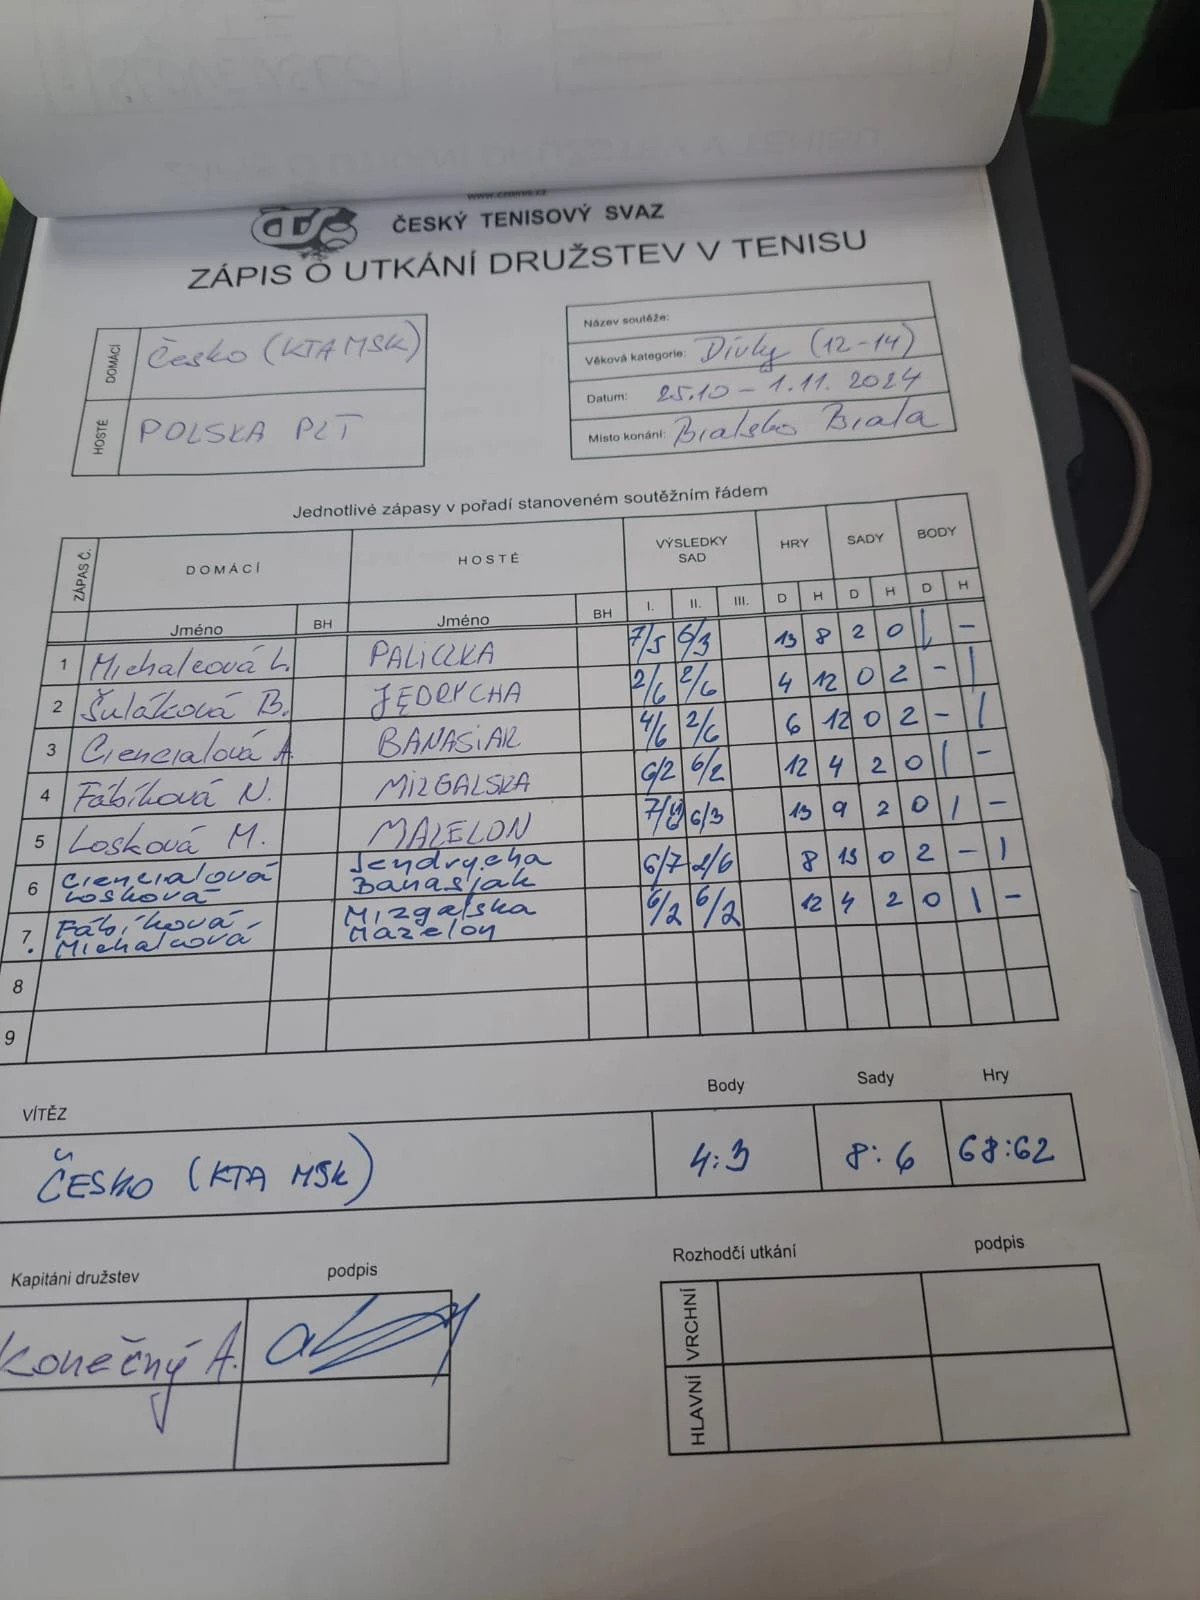 www.cztenis.cz
ČESKÝ TENISOVÝ SVAZ
ZÁPIS O UTKÁNÍ DRUŽSTEV V TENISU
DOMÁCÍ Česko (KTA MSK)
HOSTÉ POLSKA PZT
Název soutěže:
Věková kategorie: Dívky (12-14)
Datum: 25.10 - 1.11. 2024
Místo konání: Bialsko Biala
Jednotlivé zápasy v pořadí stanoveném soutěžním řádem
ZÁPAS Č. DOMÁCÍ HOSTÉ VÝSLEDKY SAD HRY SADY BODY
Jméno BH Jméno BH I. II. III. D H D H D H
1 Michalcová L. PALICZKA 7/5 6/3 13 8 2 0 1 -
2 Šuláková B. JĘDRYCHA 2/6 2/6 4 12 0 2 - 1
3 Ciencialová A. BANASIAK 4/6 2/6 6 12 0 2 - 1
4 Fábíková N. MIZGALSKA 6/2 6/2 12 4 2 0 1 -
5 Losková M. MAZELON 7/6 6/3 13 9 2 0 1 -
6 Ciencialová Losková Jendrycha Banasjak 6/7 2/6 8 13 0 2 - 1
7. Fábíková - Michalcová Mizgalska Mazelon 6/2 6/2 12 4 2 0 1 -
8
9
VÍTĚZ Body Sady Hry
ČESKO (KTA MSK) 4:3 8:6 68:62
Kapitáni družstev podpis
Konečný A.
Rozhodčí utkání podpis
VRCHNÍ
HLAVNÍ